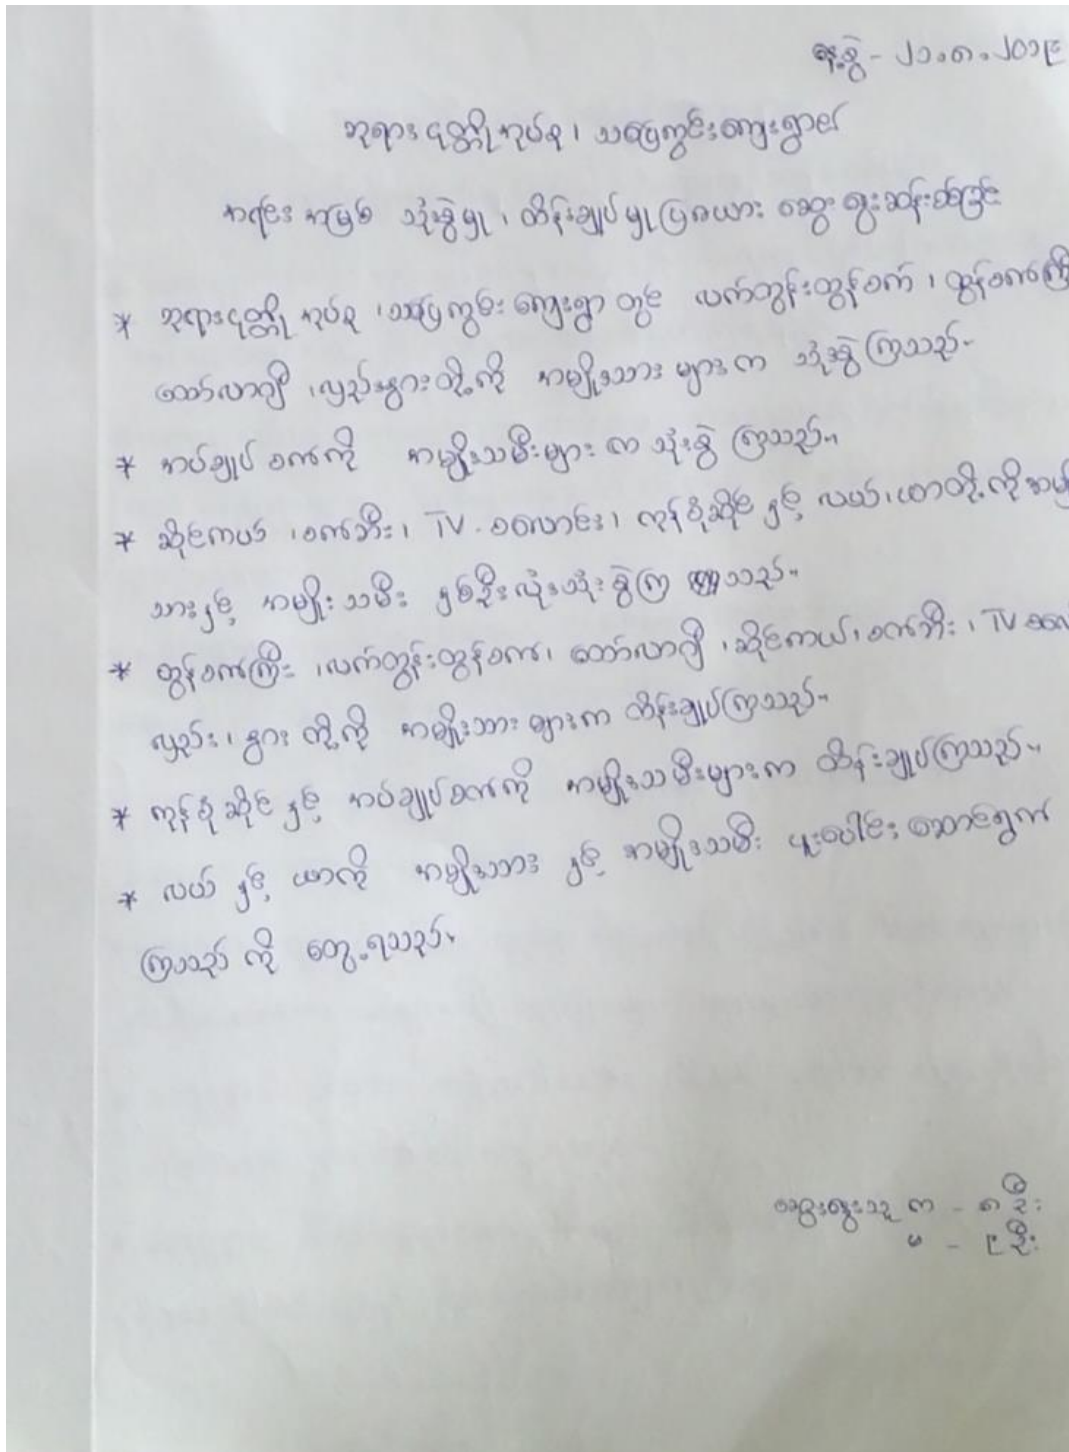 ရန့်စွဲ - ၂၁.၈.၂၀၁၉
ဘုရားငုတ္တိုအုပ်စု၊ သပြေကွင်းကျေးရွာ၏
အရင်းအမြစ် သုံးစွဲမှု၊ ထိန်းချုပ်မှုပြဇယား ဆွေးနွေးဆန်းစစ်ခြင်း
* ဘုရားငုတ္တိုအုပ်စု၊ သပြေကွင်းကျေးရွာ တွင် လက်တွန်းထွန်စက်၊ ထွန်စက်ကြီး
ထော်လာဂျီ၊ လှည်းနွားတို့ကို အမျိုးသားများက သုံးစွဲကြသည်။
* အပ်ချုပ်စက်ကို အမျိုးသမီးများက သုံးစွဲကြသည်။
* ဆိုင်ကယ်၊ စက်ဘီး၊ TV-စလောင်း၊ ကုန်စုံဆိုင် နှင့် လယ်၊ ယာတို့ကို အမျိုး
သားနှင့် အမျိုးသမီး နှစ်ဦးလုံးသုံးစွဲကြသည်။
* ထွန်စက်ကြီး၊ လက်တွန်းထွန်စက်၊ ထော်လာဂျီ၊ ဆိုင်ကယ်၊ စက်ဘီး၊ TV စလော
လှည်း၊ နွား တို့ကို အမျိုးသားများက ထိန်းချုပ်ကြသည်။
* ကုန်စုံဆိုင် နှင့် အပ်ချုပ်စက်ကို အမျိုးသမီးများက ထိန်းချုပ်ကြသည်။
* လယ် နှင့် ယာကို အမျိုးသား နှင့် အမျိုးသမီး ပူးပေါင်းဆောင်ရွက်
ကြသည် ကို တွေ့ရသည်။
ဆွေးနွေးသူ က - ၈ ဦး
မ - ၉ ဦး